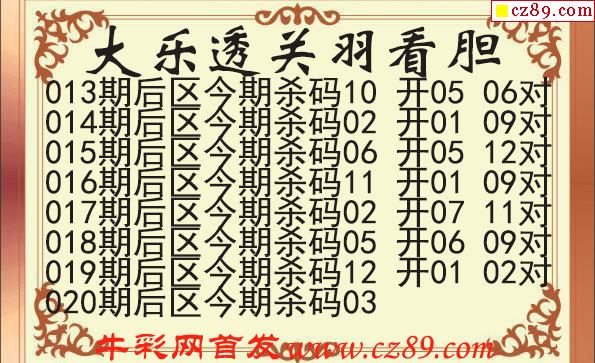 cz89.com
大乐透关羽看胆
013期后区今期杀码10 开05 06对
014期后区今期杀码02 开01 09对
015期后区今期杀码06 开05 12对
016期后区今期杀码11 开01 09对
017期后区今期杀码02 开07 11对
018期后区今期杀码05 开06 09对
019期后区今期杀码12 开01 02对
020期后区今期杀码03
牛彩网首发www.cz89.com